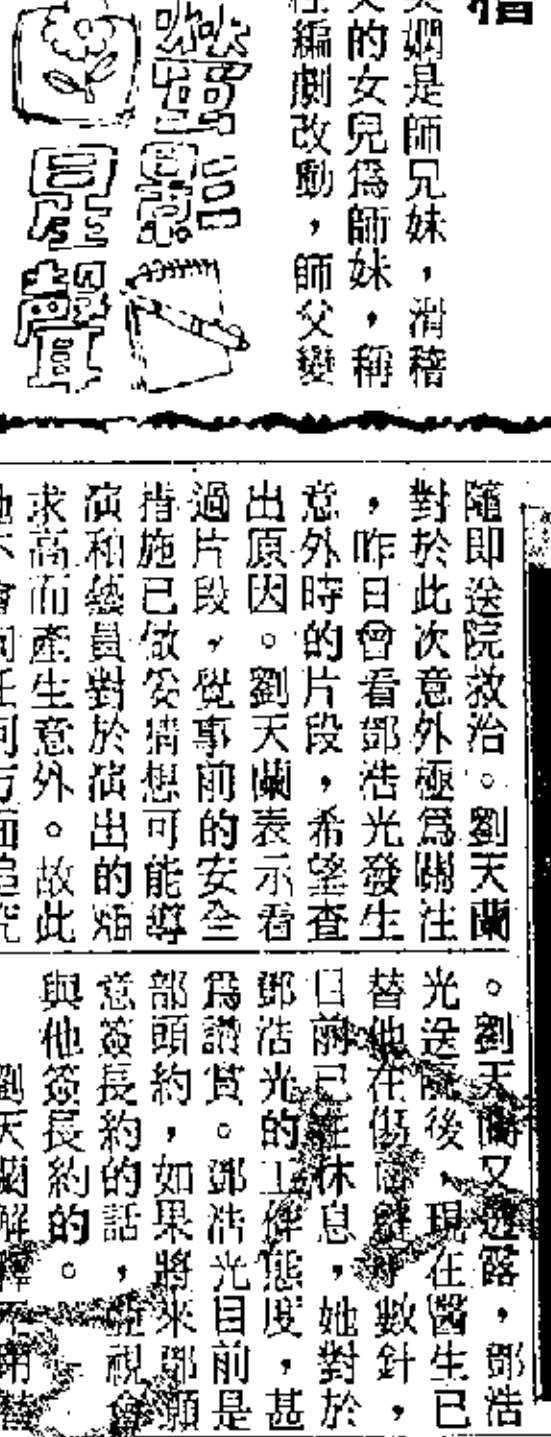 嫻是師兄妹,滑稽
的女兒爲師妹,稱
編劇改動,師父變
螢影
星聲
隨即送院救治。劉天蘭
對於此次意外極爲關注
,昨日曾看鄧浩光發生
意外時的片段,希望查
出原因。劉天蘭表示看
過片段,覺事前的安全
措施已做妥猜想可能導
演和藝員對於演出的要
求高而產生意外。故此
她不會向任何方面追究
。劉天蘭又透露,鄧浩
光送院後,現在醫生已
替他在傷口縫了數針,
目前已在休息,她對於
鄧浩光的工作態度,甚
爲讚賞。鄧浩光目前是
部頭約,如果將來鄧願
意簽長約的話,亞視會
與他簽長約的。
劉天蘭解釋